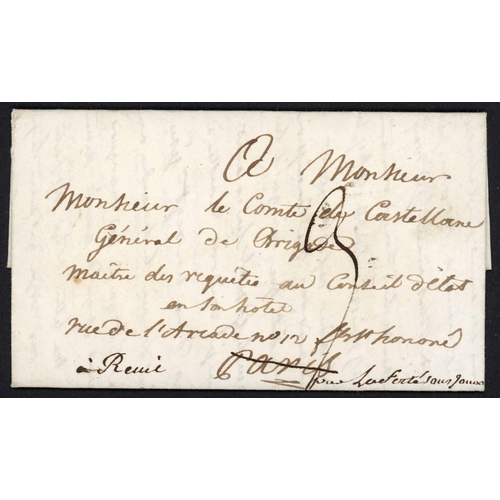 A Monsieur
Monsieur le Comte de Castellane
Général de Brigade
maitre des requetes au Conseil d'état
en son hotel
rue de l'Arcade no 12 f. st honoré
à Reuil Paris par La Ferté sous Jouarre